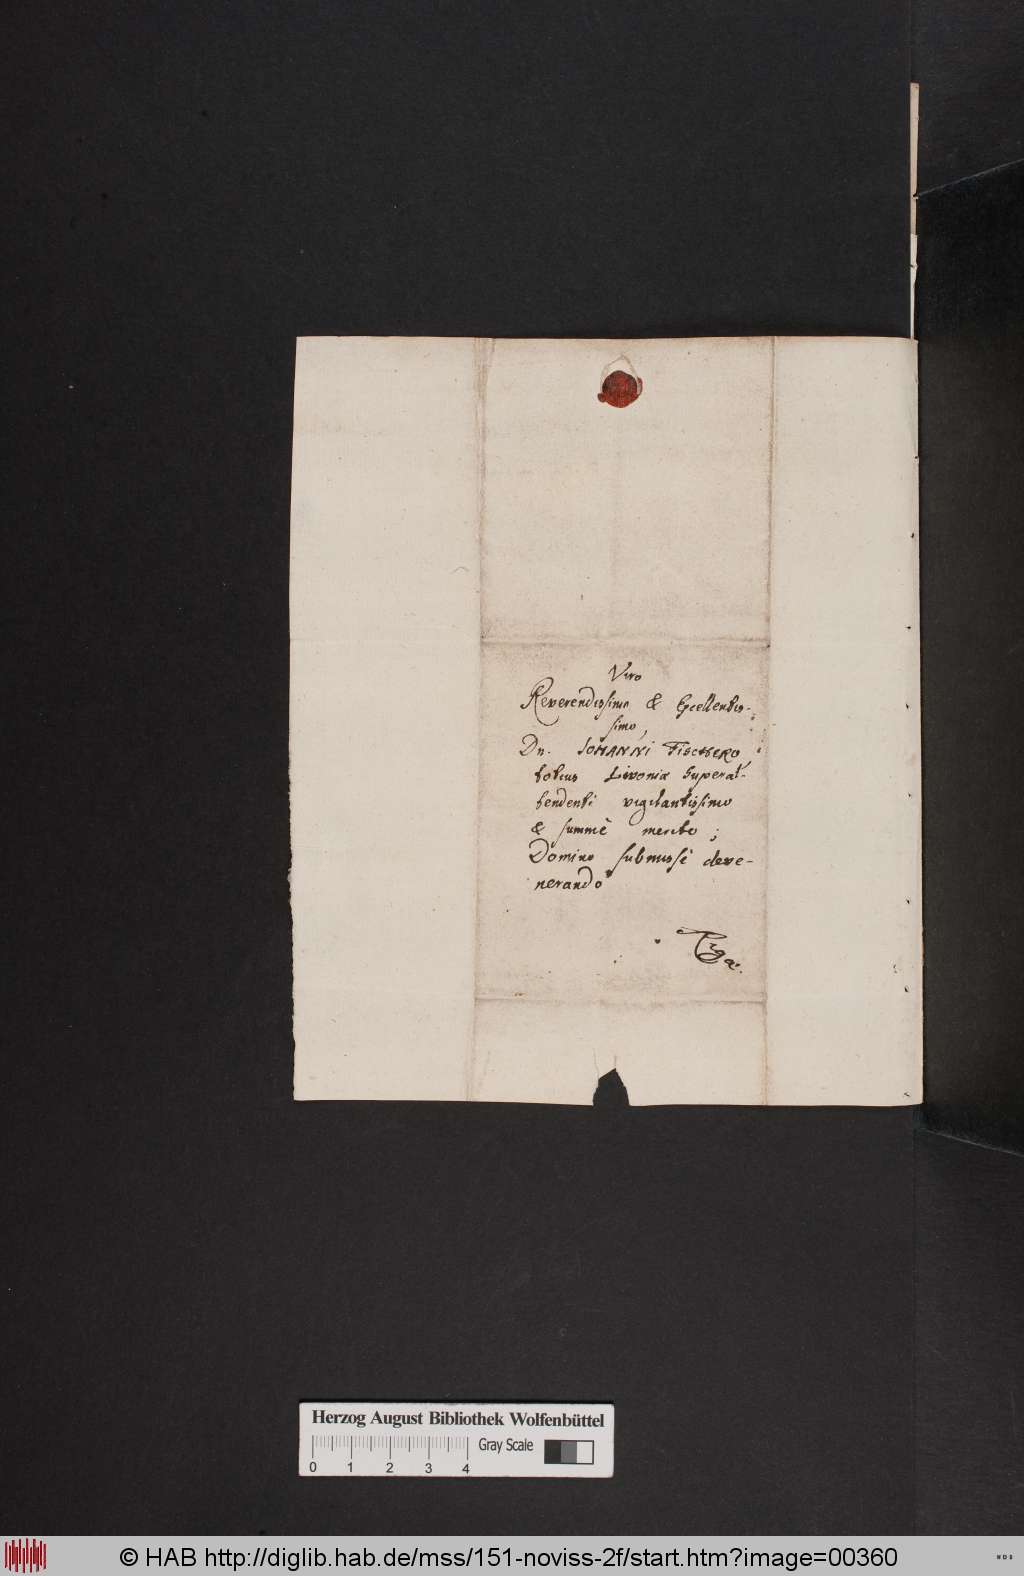 Viro
Reverendissimo & Excellentis-
simo,
Dn. IOHANNI FISCHERO,
totius Livoniæ Superat-
tendenti vigilantissimo
& summè merito;
Domino submissè deve-
nerando
Rigæ.
Herzog August Bibliothek Wolfenbüttel
Gray Scale
0 1 2 3 4
© HAB http://diglib.hab.de/mss/151-noviss-2f/start.htm?image=00360